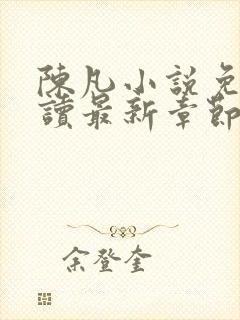 陳凡小說免
讀最新章節
余登奎